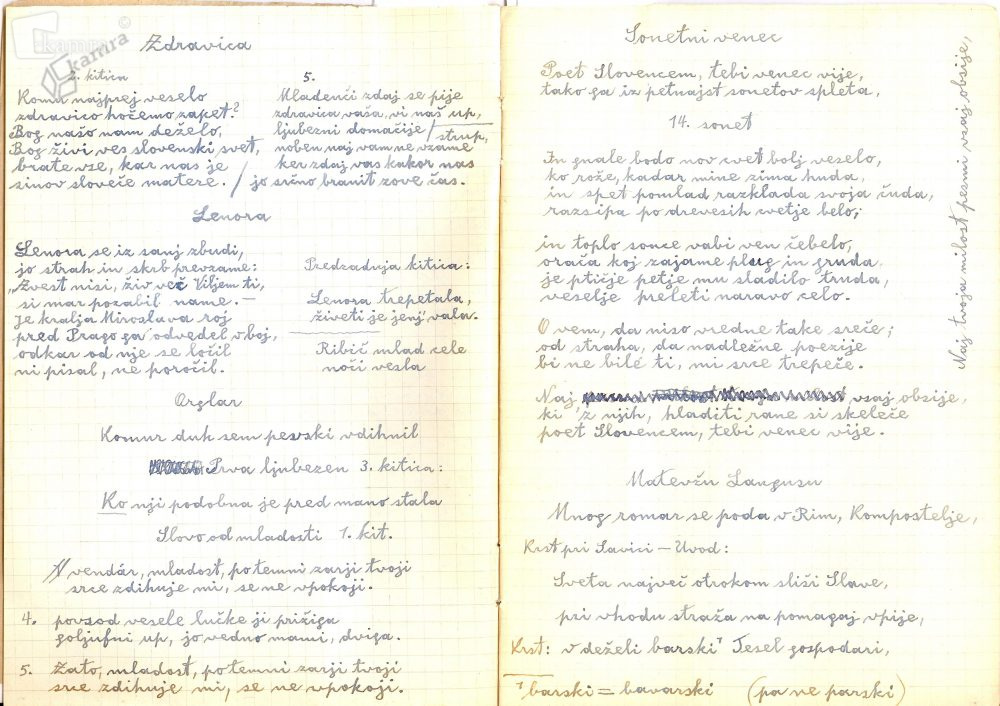 kamra
Zdravica
2. kitica
Komu najprej veselo
zdravico hočemo zapet?
Bog našo nam deželo,
Bog živi ves slovenski svet,
brate vse, kar nas je
sinov sloveče matere.
5.
Mladenči zdaj se pije
zdravica vaša, vi naš up,
ljubezni domačije
noben naj vam ne vzame / strup,
ker zdaj vas kakor nas
jo srčno branit zove čas.
Lenora
Lenora se iz sanj zbudi,
jo strah in skrb prevzame:
"Zvest nisi, živ več Viljem ti,
si mar pozabil name. —
Je kralja Miroslava roj
pred Prago ga odvedel v boj,
odkar od nje se ločil
ni pisal, ne poročil.
Predzadnja kitica:
Lenora trepetala,
živeti je jenj'vala.
Ribič mlad cele
noči vesla
Orglar
Komur duh sem pevski vdihnil
Prva ljubezen 3. kitica:
Ko nji podobna je pred mano stala
Slovo od mladosti 1. kit.
vendár, mladost, po temni zarji tvoji
srce zdihuje mi, se ne vpokoji.
4. povsod vesele lučke ji prižiga
goljufni up, jo vedno mami, dviga.
5. Zato, mladost, po temni zarji tvoji
srce zdihuje mi, se ne vpokoji.
Sonetni venec
Poet Slovencem, tebi venec vije,
tako ga iz petnajst sonetov spleta,
14. sonet
In gnale bodo nov cvet bolj veselo,
ko rože, kadar mine zima huda,
in spet pomlad razklada svoja čuda,
razsipa po drevesih cvetje belo;
in toplo sonce vabi ven čebelo,
orača koj zajame plug in gruda
je ptičje petje mu sladilo truda,
veselje preleti naravo celo.
O vem, da niso vredne take sreče;
od straha, da nadležne poezije
bi ne bile ti, mi srce trepeče.
Naj vsaj obsije,
ki 'z njih, hladiti rane si skeleče
poet Slovencem, tebi venec vije.
Naj tvoja milost pesmi vsaj obsije,
Matevžu Langusu
Mnog romar se poda v Rim, Kompostelje,
Krst pri Savici — Uvod:
Sveta največ otrokom sliši Slave,
pri vhodu straža na pomagaj vpije,
Krst: v deželi barski⁺ Tesel gospodari,
⁺ barski = bavarski (pa ne parski)